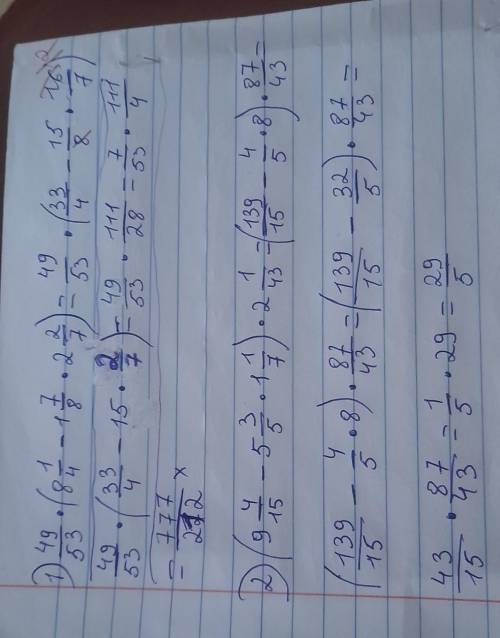 1) 49/53 · (8 1/4 - 1 7/8 · 2 2/7) = 49/53 · (33/4 - 15/8 · 16/7)
49/53 · (33/4 - 15 · 2/7) = 49/53 · 111/28 = 7/53 · 111/4
= 777/212 x
2) (9 4/15 - 5 3/5 · 1 1/7) · 2 1/43 = (139/15 - 4/5 · 8) · 87/43 =
(139/15 - 4/5 · 8) · 87/43 = (139/15 - 32/5) · 87/43 =
43/15 · 87/43 = 1/5 · 29 = 29/5